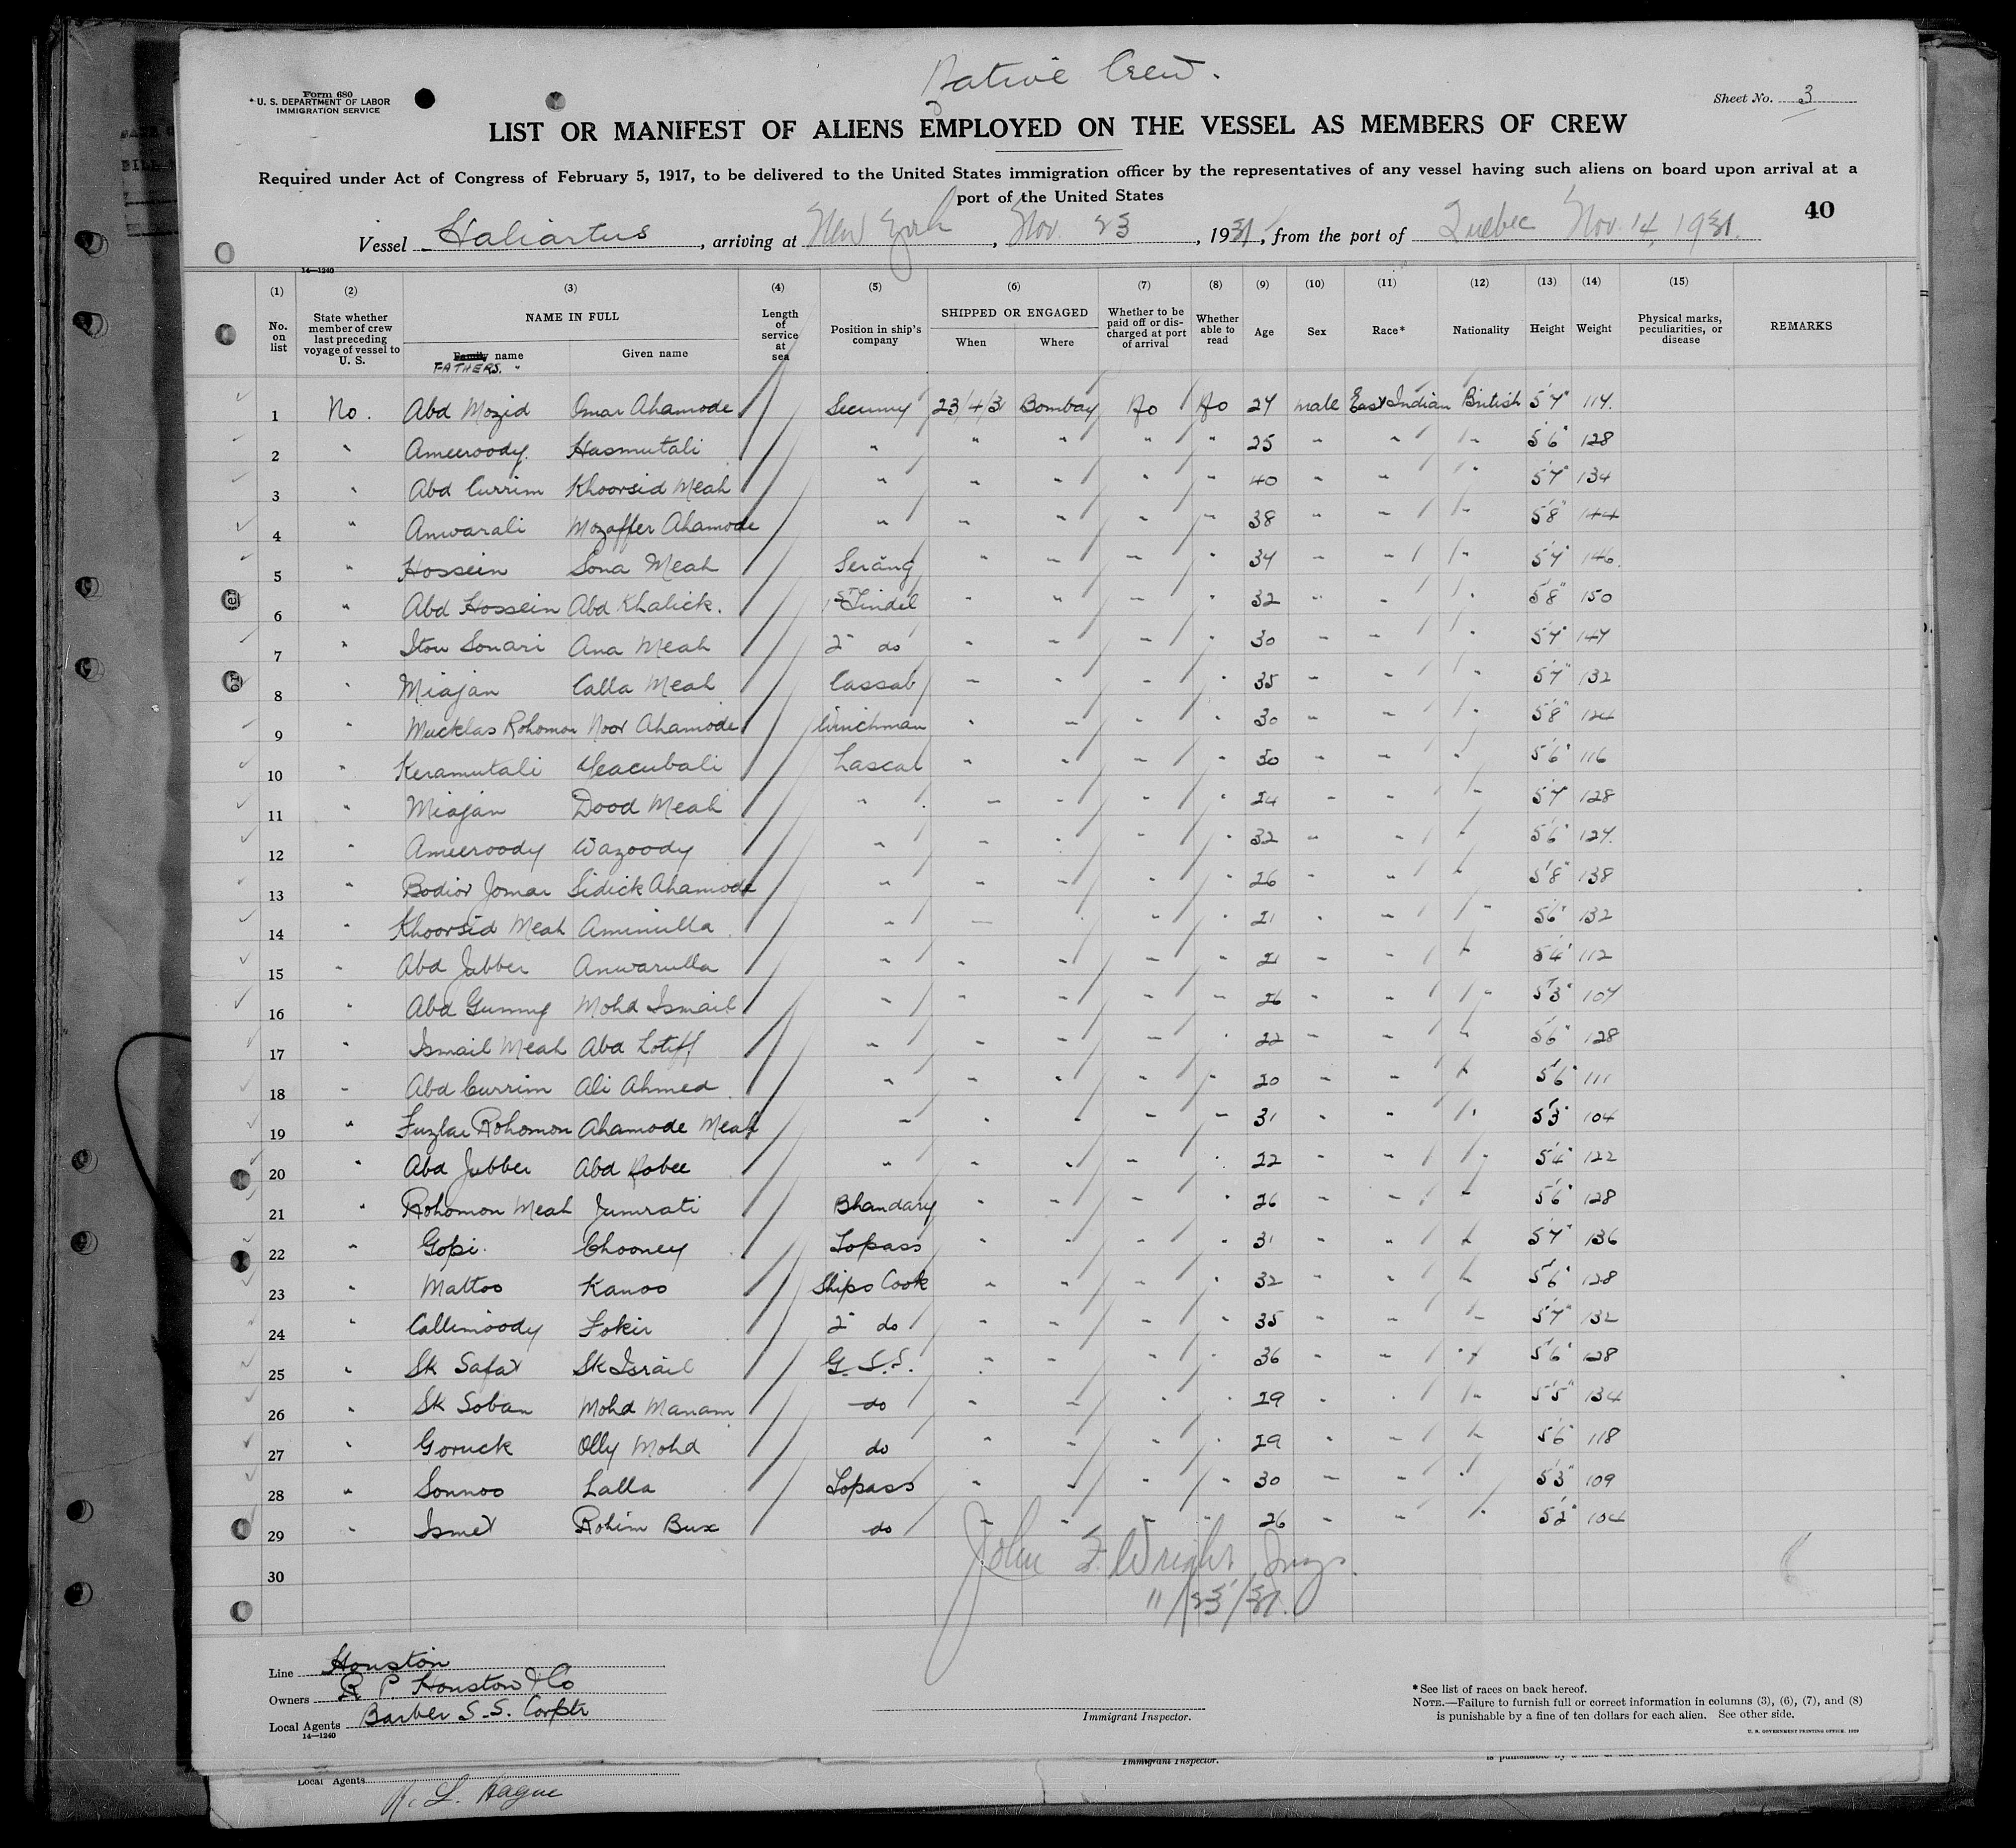 Native Crew.
Form 680
* U. S. DEPARTMENT OF LABOR
IMMIGRATION SERVICE
Sheet No. 3
LIST OR MANIFEST OF ALIENS EMPLOYED ON THE VESSEL AS MEMBERS OF CREW
Required under Act of Congress of February 5, 1917, to be delivered to the United States immigration officer by the representatives of any vessel having such aliens on board upon arrival at a
port of the United States
40
Vessel Haliartus, arriving at New York, Nov. 23, 1931, from the port of Quebec Nov. 14, 1931.
14—1240
(1) (2) (3) (4) (5) (6) (7) (8) (9) (10) (11) (12) (13) (14) (15)
No. on list State whether member of crew last preceding voyage of vessel to U. S. NAME IN FULL Length of service at sea Position in ship's company SHIPPED OR ENGAGED Whether to be paid off or discharged at port of arrival Whether able to read Age Sex Race* Nationality Height Weight Physical marks, peculiarities, or disease REMARKS
Family name Given name When Where
FATHERS. "
1 No. Abd Mozid Omar Ahamode Secunny 23/4/31 Bombay No No 27 male East Indian British 5'7" 117.
2 " Ameeroody. Hasmutali " " " " " 25 " " " 5'6" 128
3 " Abd Currim Khoorsid Meah " " " " " 40 " " " 5'7" 134
4 " Anwarali Mozaffer Ahamode " " " " " 38 " " " 5'8" 144
5 " Hossein Sona Meah Serang " " " " 34 " " " 5'7" 146.
6 " Abd Hossein Abd Khalick. 1st Tindel " " " " 32 " " " 5'8" 150
7 " Itou Sonari Ana Meah 2" do " " " " 30 " " " 5'7" 147
8 " Miajan Calla Meah Cassab " " " " 35 " " " 5'7" 132
9 " Mucklas Rohomon Noor Ahamode Winchman " " " " 30 " " " 5'8" 124
10 " Keramutali Yeacubali Lascar " " " " 30 " " " 5'6" 116
11 " Miajan Dood Meah " " " " " 24 " " " 5'7" 128
12 " Ameeroody Wazoody " " " " " 32 " " " 5'6" 127.
13 " Bodior Jomar Sidick Ahamode " " " " " 26 " " " 5'8" 138
14 " Khoorsid Meah Aminulla " " " " " 21 " " " 5'6" 132
15 " Abd Jubber Anwarulla " " " " " 21 " " " 5'4" 112
16 " Abd Gunny Mohd Ismail " " " " " 26 " " " 5'3" 107
17 " Ismail Meah Abd Lotiff " " " " " 22 " " " 5'6" 128
18 " Abd Currim Ali Ahmed " " " " " 20 " " " 5'6" 111
19 " Fuzlar Rohomon Ahamode Meah " " " " " 31 " " " 5'3" 104
20 " Abd Jubber Abd Robee " " " " " 22 " " " 5'4" 122
21 " Rohomon Meah Jumrati Bhandary " " " " 26 " " " 5'6" 128
22 " Gopi. Chooney Topass " " " " 31 " " " 5'7" 136
23 " Mattoo Kanoo Ships Cook " " " " 32 " " " 5'6" 128
24 " Callimoody Fokir 2" do " " " " 35 " " " 5'7" 132
25 " Sk Safat Sk Israil G. S. S. " " " " 36 " " " 5'6" 128
26 " Sk Soban Mohd Manam do " " " " 29 " " " 5'5" 134
27 " Goruck Olly Mohd do " " " " 29 " " " 5'6" 118
28 " Sonnoo Lalla Topass " " " " 30 " " " 5'3" 109
29 " Ismet Rohim Bux do " " " " 26 " " " 5'2" 104
30
John F. Wright Insp.
11/23/31.
Line Houston
Owners R P Houston & Co
Local Agents Barber S.S. Corptn
14—1240
Immigrant Inspector.
* See list of races on back hereof.
NOTE.—Failure to furnish full or correct information in columns (3), (6), (7), and (8)
is punishable by a fine of ten dollars for each alien. See other side.
U. S. GOVERNMENT PRINTING OFFICE: 1929
Immigrant Inspector.
Local Agents
K. L. Hague